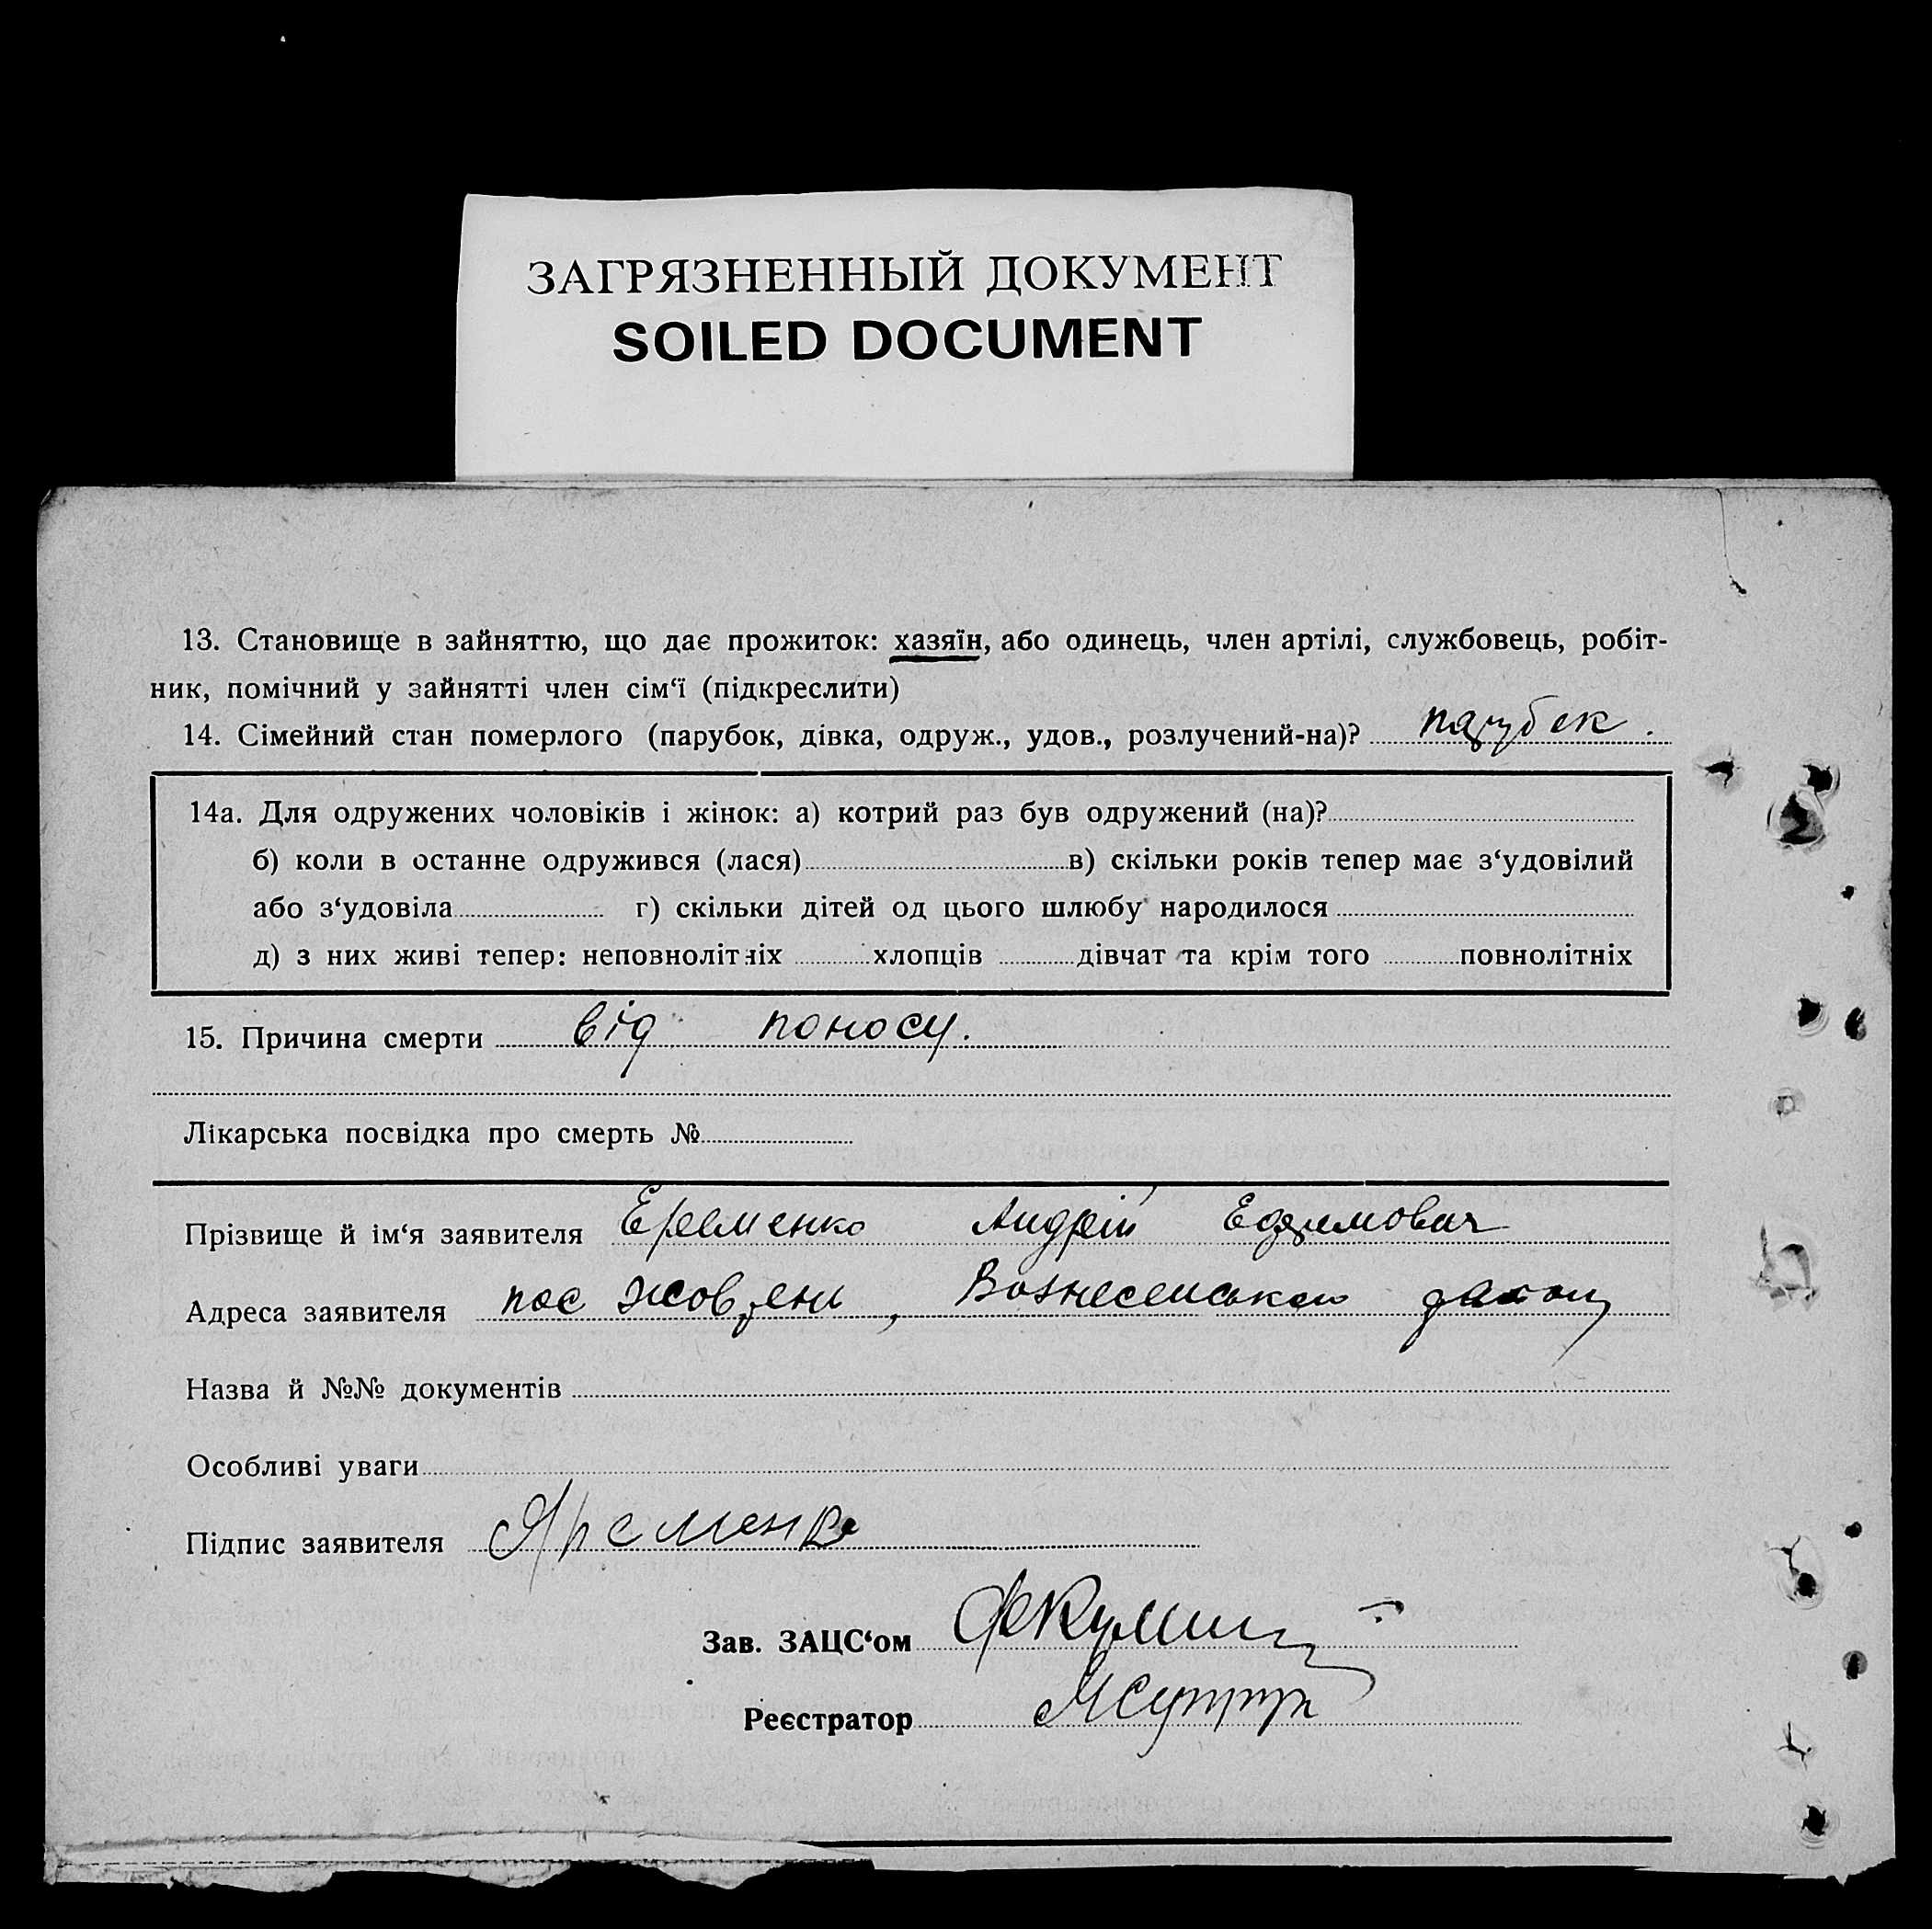 ЗАГРЯЗНЕННЫЙ ДОКУМЕНТ
SOILED DOCUMENT
13. Становище в зайняттю, що дає прожиток: хазяїн, або одинець, член артілі, службовець, робіт-
ник, помічний у зайнятті член сім‘ї (підкреслити)
14. Сімейний стан померлого (парубок, дівка, одруж., удов., розлучений-на)? парубек.
14а. Для одружених чоловіків і жінок: а) котрий раз був одружений (на)?
б) коли в останне одружився (лася) в) скільки років тепер має з‘удовілий
або з‘удовіла г) скільки дітей од цього шлюбу народилося
д) з них живі тепер: неповнолітніх хлопців дівчат та крім того повнолітніх
15. Причина смерти від поносу.
Лікарська посвідка про смерть №
Прізвище й ім‘я заявителя Еременко Андрій
Адреса заявителя пос
Назва й №№ документів
Особливі уваги
Підпис заявителя Яременко
Зав. ЗАЦС‘ом
Реєстратор